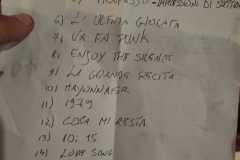 IMPRESSIONI DI SETTEM
6) L'ULTIMA GIOCATA
7) VA FA
8) ENJOY THE SILENCE
9) LA GRANDE RECITA
10)
11) 1979
12) COSA MI RESTA
13) 10:15
14) LOVE SONG